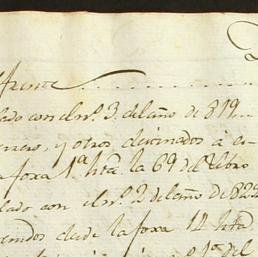 frente
lado con el nº 3. del año de 819
y otros, destinados á
foxa 1ª htā la 69 del libro
lado con el nº 2 del año de 822
desde la foxa 14 htā
1ª del